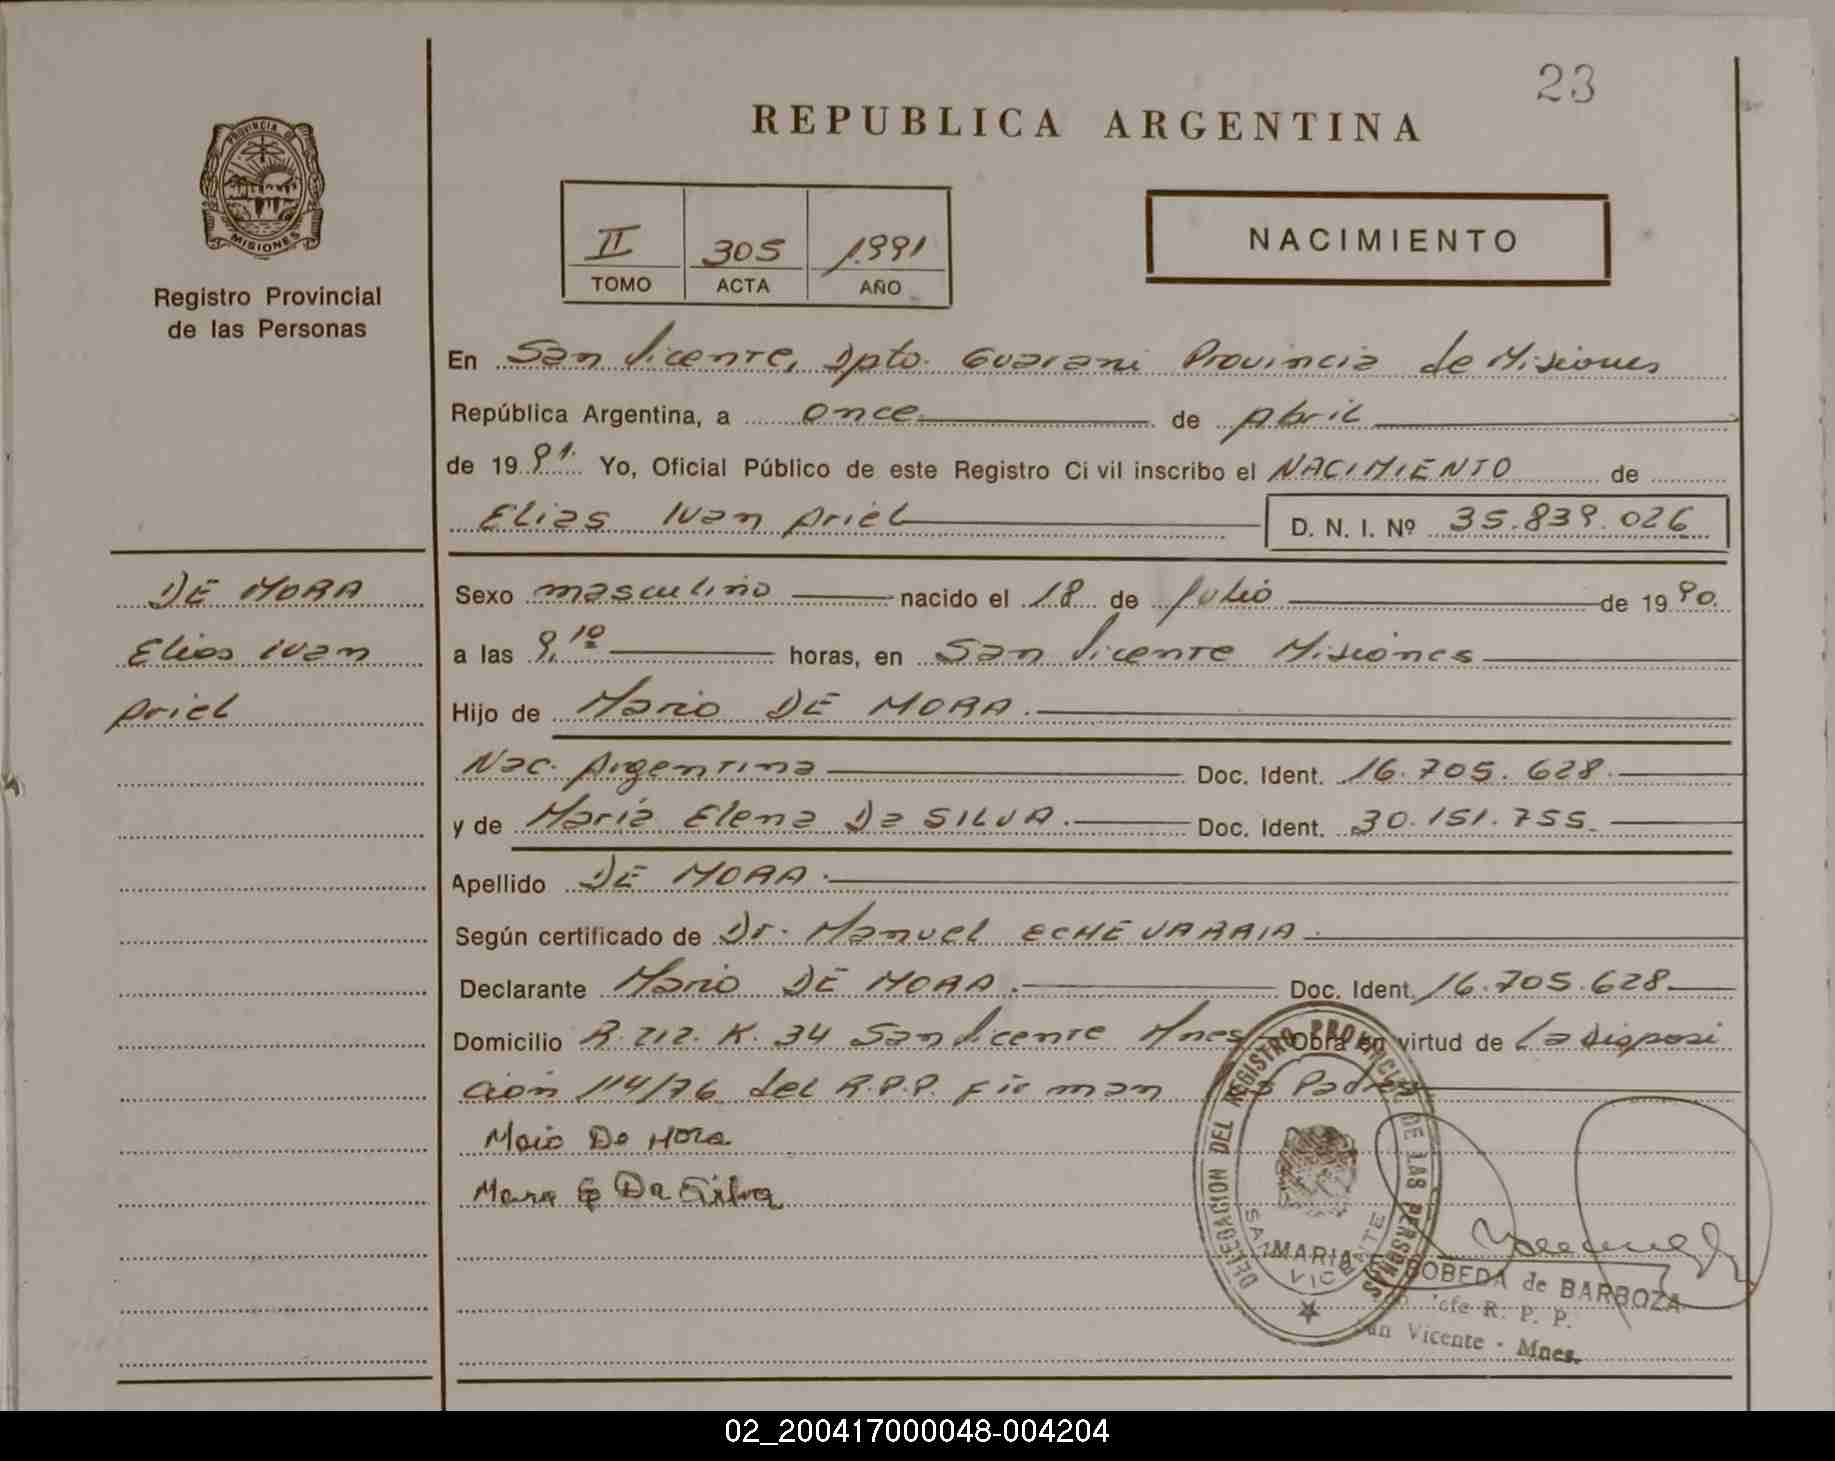 23
REPUBLICA ARGENTINA
PROVINCIA DE
MISIONES
Registro Provincial
de las Personas
II 305 1.991
TOMO ACTA AÑO
NACIMIENTO
En San Vicente, Dpto. Guarani Provincia de Misiones
República Argentina, a once de Abril
de 1991. Yo, Oficial Público de este Registro Civil inscribo el NACIMIENTO de
Elias Ivan Ariel D. N. I. Nº 35.839.026
DE MORA
Elias Ivan
Ariel
Sexo masculino nacido el 18 de Julio de 1990.
a las 9,10 horas, en San Vicente Misiones
Hijo de Mario DE MORA.
Nac. Argentina Doc. Ident. 16.705.628.
y de María Elena Da SILVA. Doc. Ident. 30.151.755.
Apellido DE MORA.
Según certificado de Dr. Manuel ECHEVARRIA.
Declarante Mario DE MORA. Doc. Ident. 16.705.628
Domicilio R. 212. K. 34 San Vicente Mnes Obra en virtud de La disposi
ción 114/76 del R.P.P. firman los Padres
Maio De Mora
Mara E Da Silva
DELEGACION DEL REGISTRO PROVINCIAL DE LAS PERSONAS
SAN VICENTE
MARIA BOBEDA de BARBOZA
Jefe R. P. P.
San Vicente - Mnes.
02_200417000048-004204